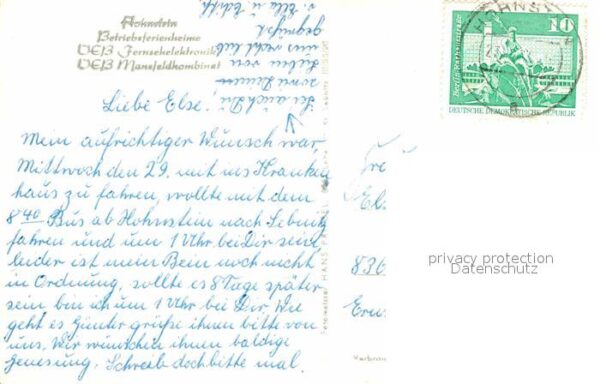 Hohnstein
Betriebsferienheime
VEB Fernsehelektronik
VEB Mansfeldkombinat
Liebe Else!
Mein aufrichtiger Wunsch war,
Mittwoch den 29. mit ins Kranken
haus zu fahren, wollte mit dem
8 40 Bus ab Hohnstein nach Sebnitz
fahren und um 1 Uhr bei Dir sein,
leider ist mein Bein noch nicht
in Ordnung, sollte es 8 Tage später
sein bin ich um 1 Uhr bei Dir. Wie
geht es Günter grüße ihnen bitte von
uns. Wir wünschen ihnen baldige
Genesung. Schreib doch bitte mal.
Sei auch Du,
Lieben von
uns recht lieb
gegrüßt
HOHNST
10
Berlin, Rathausstraße
DEUTSCHE DEMOKRATISCHE REPUBLIK
El
836
privacy protection
Datenschutz
HANS